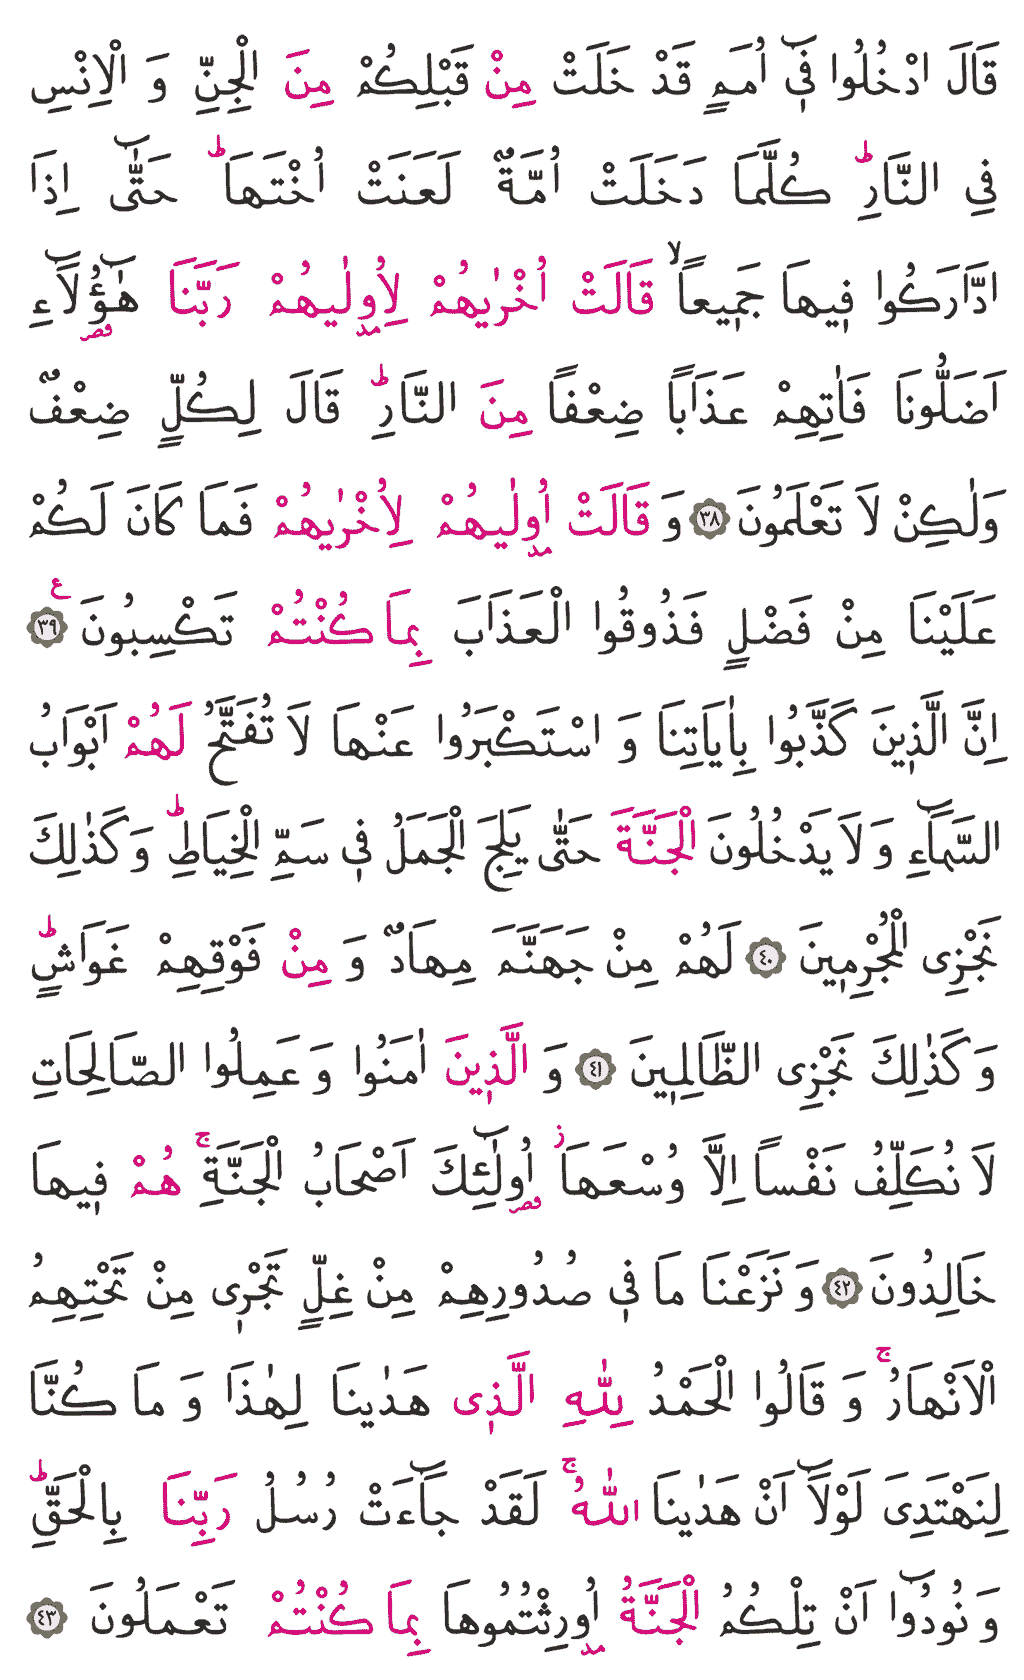 قَالَ ادْخُلُوا ف۪ٓي اُمَمٍ قَدْ خَلَتْ مِنْ قَبْلِكُمْ مِنَ الْجِنِّ وَ الْاِنْسِ
فِي النَّارِۜ كُلَّمَا دَخَلَتْ اُمَّةٌ لَعَنَتْ اُخْتَهَاۜ حَتّٰٓى اِذَا
ادَّارَكُوا ف۪يهَا جَم۪يعاًۙ قَالَتْ اُخْرٰيهُمْ لِاُو۫لٰيهُمْ رَبَّنَا هٰٓؤُ۬لَٓاءِ
اَضَلُّونَا فَاٰتِهِمْ عَذَاباً ضِعْفاً مِنَ النَّارِۜ قَالَ لِكُلٍّ ضِعْفٌ
وَلٰكِنْ لَا تَعْلَمُونَ ﴿٣٨﴾ وَ قَالَتْ اُو۫لٰيهُمْ لِاُخْرٰيهُمْ فَمَا كَانَ لَكُمْ
عَلَيْنَا مِنْ فَضْلٍ فَذُوقُوا الْعَذَابَ بِمَا كُنْتُمْ تَكْسِبُونَ ﴿٣٩﴾ ع
اِنَّ الَّذ۪ينَ كَذَّبُوا بِاٰيَاتِنَا وَ اسْتَكْبَرُوا عَنْهَا لَا تُفَتَّحُ لَهُمْ اَبْوَابُ
السَّمَٓاءِ وَ لَا يَدْخُلُونَ الْجَنَّةَ حَتّٰى يَلِجَ الْجَمَلُ ف۪ي سَمِّ الْخِيَاطِۜ وَ كَذٰلِكَ
نَجْزِي الْمُجْرِم۪ينَ ﴿٤٠﴾ لَهُمْ مِنْ جَهَنَّمَ مِهَادٌ وَ مِنْ فَوْقِهِمْ غَوَاشٍۜ
وَ كَذٰلِكَ نَجْزِي الظَّالِم۪ينَ ﴿٤١﴾ وَ الَّذ۪ينَ اٰمَنُوا وَ عَمِلُوا الصَّالِحَاتِ
لَا نُكَلِّفُ نَفْساً اِلَّا وُسْعَهَاۘ اُو۬لٰٓئِكَ اَصْحَابُ الْجَنَّةِۚ هُمْ ف۪يهَا
خَالِدُونَ ﴿٤٢﴾ وَ نَزَعْنَا مَا ف۪ي صُدُورِهِمْ مِنْ غِلٍّ تَجْر۪ي مِنْ تَحْتِهِمُ
الْاَنْهَارُۚ وَ قَالُوا الْحَمْدُ لِلّٰهِ الَّذ۪ي هَدٰينَا لِهٰذَا وَ مَا كُنَّا
لِنَهْتَدِيَ لَوْلَٓا اَنْ هَدٰينَا اللّٰهُۚ لَقَدْ جَٓاءَتْ رُسُلُ رَبِّنَا بِالْحَقِّۜ
وَ نُودُٓوا اَنْ تِلْكُمُ الْجَنَّةُ اُو۫رِثْتُمُوهَا بِمَا كُنْتُمْ تَعْمَلُونَ ﴿٤٣﴾